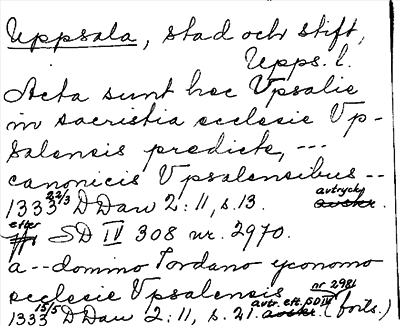 Uppsala, stad och stift,
Upps. l.
Acta sunt hec Vpsalie
in sacristia ecclesie Vp-
salensis predicte, ---
canonicis Vpsalensibus --
1333 22/3 DDan 2:11, s. 13. avtryck avskr.
efter SD IV 308 nr. 2970.
a -- domino Jordano yconomo
ecclesie Vpsalensis nr 2981
1333 15/5 DDan 2:11, s. 21. avtr. eft. SD IV avskr. (forts.)